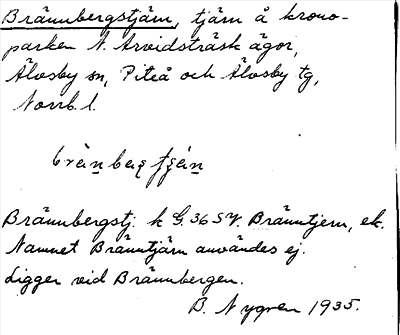 Brännbergstjärn, tjärn å krono-
parken N. Arvidsträsk ägor,
Älvsby sn, Piteå och Älvsby tg,
Norrb. l.
Brännbergstj. k G. 36 SV. Bränntjern, ek.
Namnet Bränntjärn användes ej.
Ligger vid Brännbergen.
B. Nygren 1935.